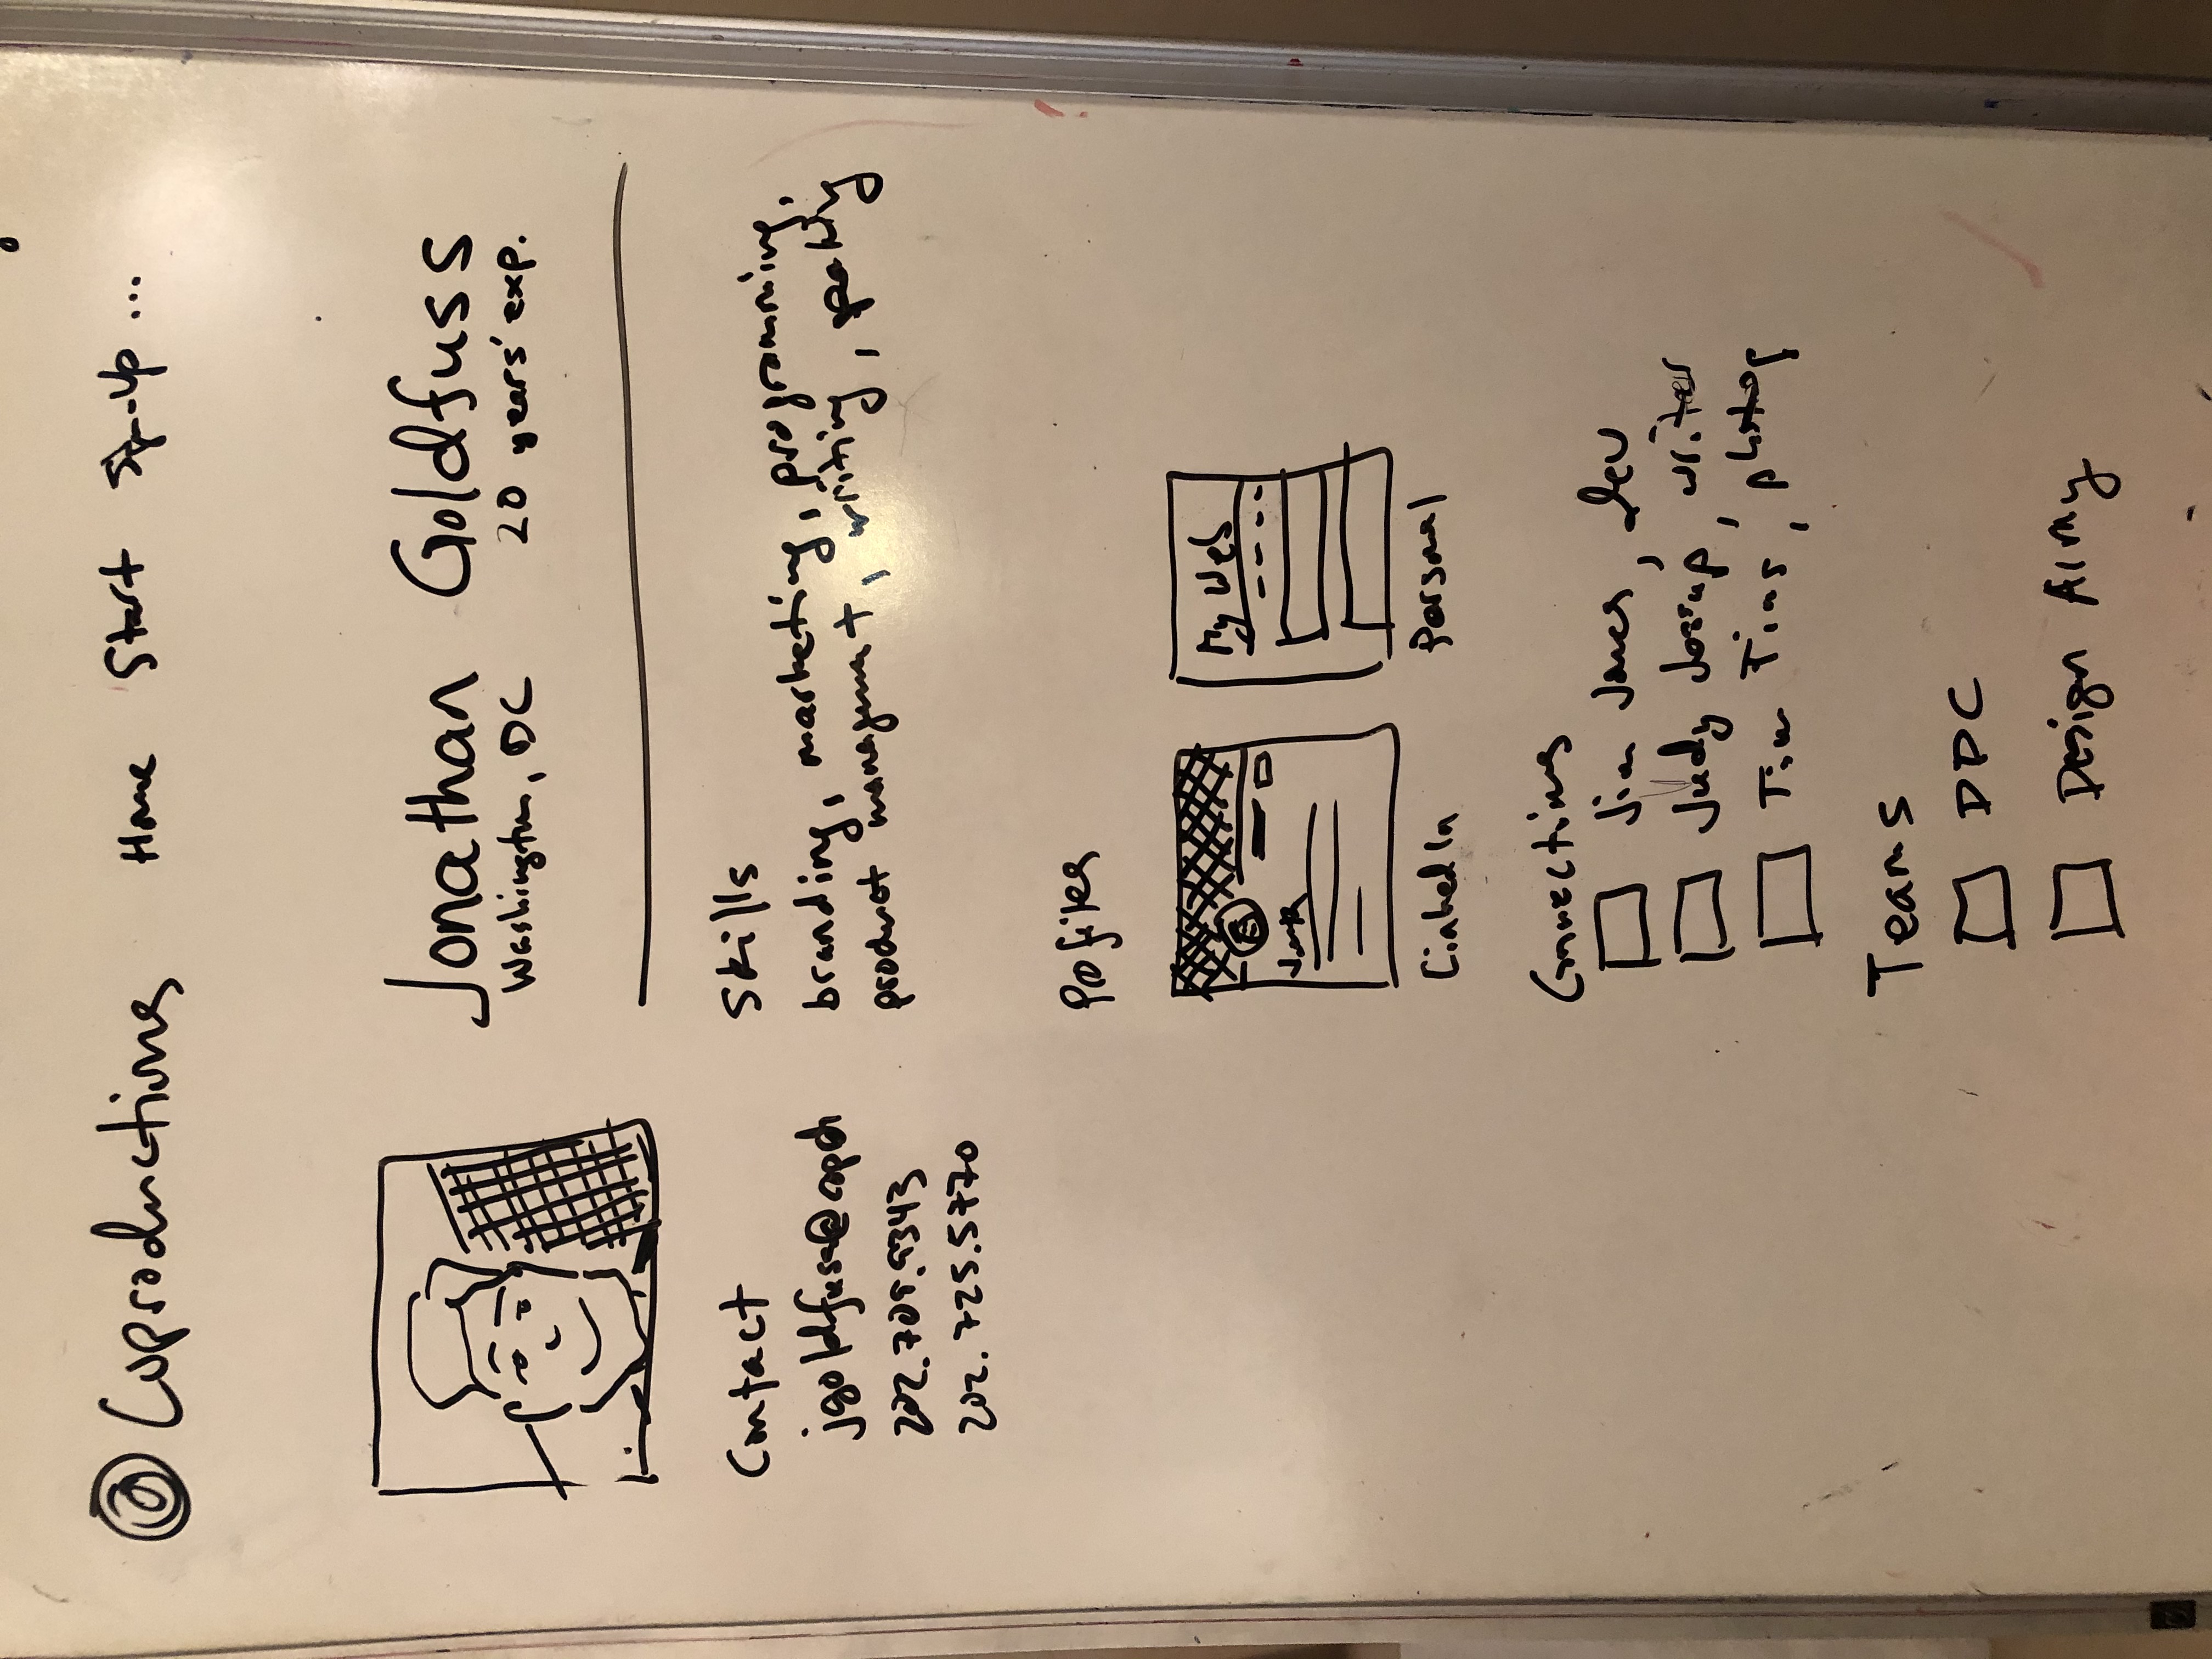 Coproductions Home Start Sign-Up ...
Jonathan Goldfuss
Washington, DC 20 years' exp.
Contact
202.709.9343
202.725.5770
Skills
branding, marketing, programming,
product management, writing, speaking
Profiles
My Web
LinkedIn
Personal
Connections
Jim Jones, dev
Judy Jessup, writer
Tim Tims, photog
Teams
DDC
Design Army